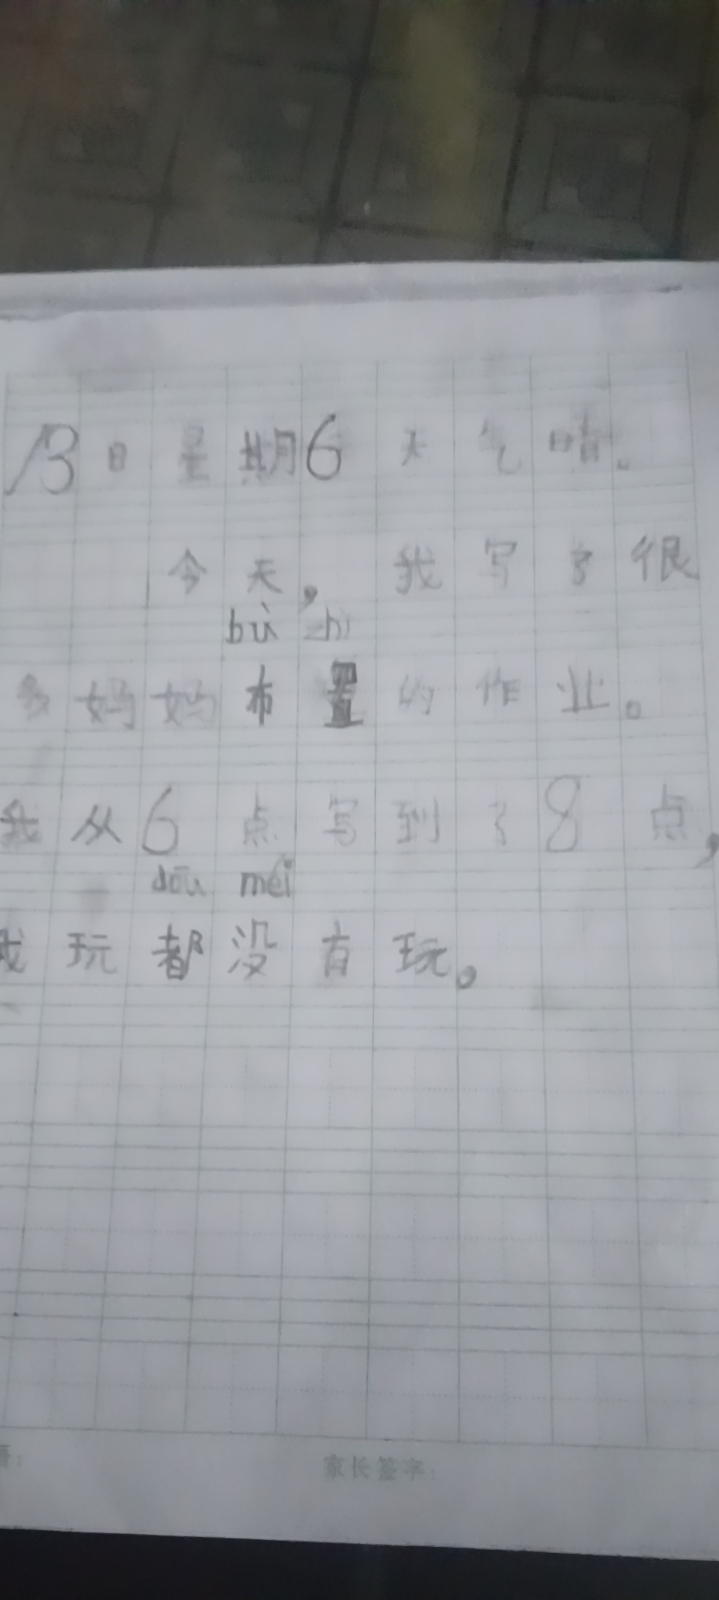 13日星期6天气晴。
今天，我写了很
bù zhì
多妈妈布置的作业。
我从6点写到了8点，
dōu méi
我玩都没有玩。
家长签字：